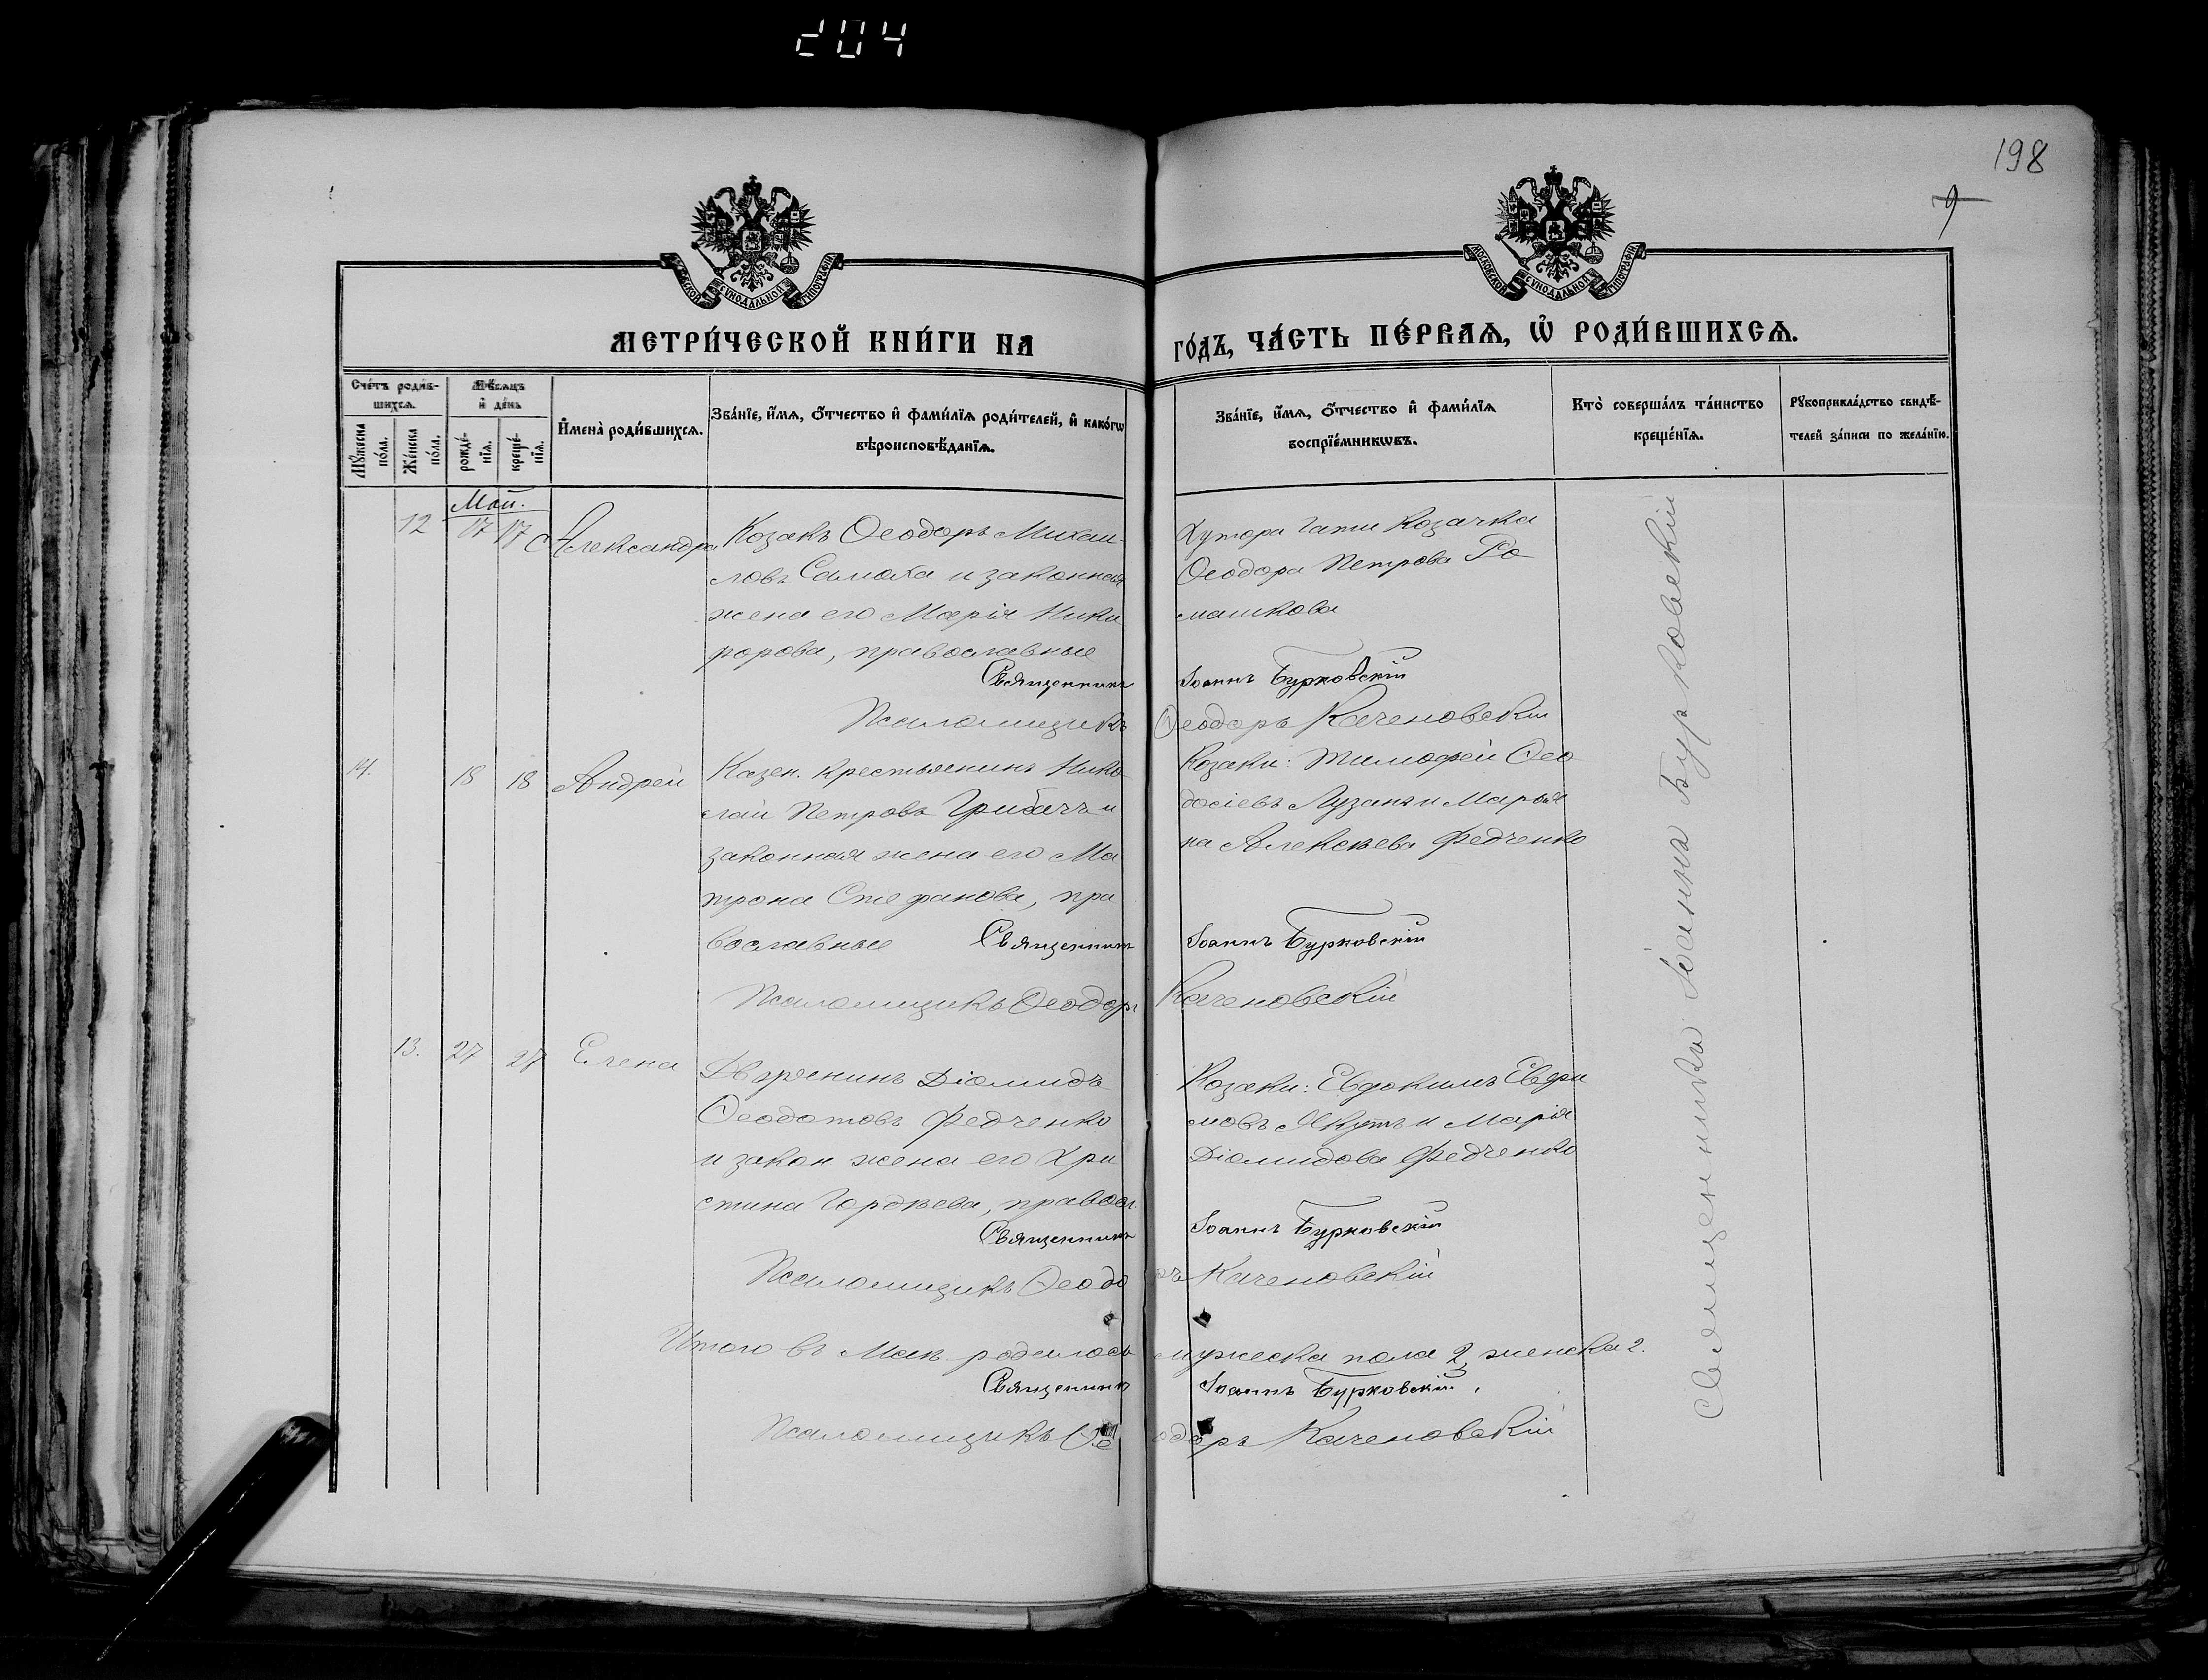 204
198
9
МОСКОВСКОЙ СѴНОДАЛЬНОЙ ТИПОГРАФІИ
МОСКОВСКОЙ СѴНОДАЛЬНОЙ ТИПОГРАФІИ
МЕТРИ́ЧЕСКОЙ КНИ́ГИ НА ГО́ДЪ, ЧА́СТЬ ПЕ́РВАѦ, Ѡ҆ РОДИ́ВШИХСѦ.
Сче́тъ роди́в-
шихсѧ.
Мѣ́сѧцъ
и҆ де́нь
Мꙋ́жеска по́ла.
Же́нска по́ла.
рожде́-нїѧ.
креще́-нїѧ.
И҆мена̀ роди́вшихсѧ.
Зва́нїе, и҆́мѧ, ѻ҆́тчество и҆ фами́лїѧ роди́телей, и҆ како́гѡ
вѣроисповѣ́данїѧ.
Зва́нїе, и҆́мѧ, ѻ҆́тчество и҆ фами́лїѧ
воспрїе́мникѡвъ.
Кто̀ соверша́лъ та́инство
креще́нїѧ.
Рꙋкоприкла́дство свидѣ́-
телей за́писи по жела́нїю.
Май.
12 17 17 Александра
Козакъ Ѳеодоръ Михаи-
ловъ Самоха и законная
жена его Марія Ники
форова, православные
Хутора Гати козачка
Ѳеодора Петрова Ро
машкова
Священникъ Іоаннъ Бурковскій
Псаломщикъ Ѳеодоръ Каченовскій
14. 18 18 Андрей
Казен. крестьянинъ Нико
лай Петровъ Грибачъ и
законная жена его Ма
трона Стефанова, пра
вославные
Козаки: Тимофей Ѳео
досіевъ Лузанъ и Марья
на Алексѣева Федченко
Священникъ Іоаннъ Бурковскій
Псаломщикъ Ѳеодоръ Каченовскій
13. 27 27 Елена
Дворянинъ Діомидъ
Ѳеодотовъ Федченко
и закон жена его Хри
стина Гордѣева, правосл.
Козаки: Евдокимъ Евфи
мовъ Якутъ и Марія
Діомидова Федченко
Священникъ Іоаннъ Бурковскій
Псаломщикъ Ѳеодоръ Каченовскій
Итого въ Маѣ родилось мужеска пола 2, женска 2.
Священникъ Іоаннъ Бурковскій.
Псаломщикъ Ѳеодоръ Каченовскій
Священникъ Іоаннъ Бурковскій